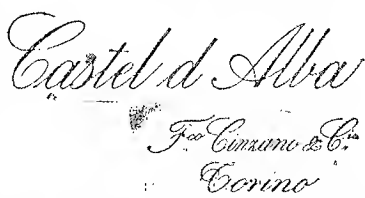 Castel d Alba
Fco Cinzano & Cia
Torino